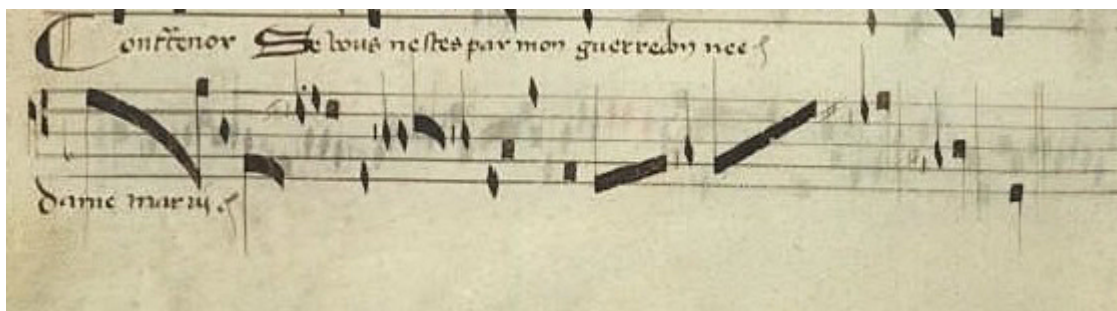 Cont̃tenor Se vous nestes par mon guerredon nee
dame mar vi